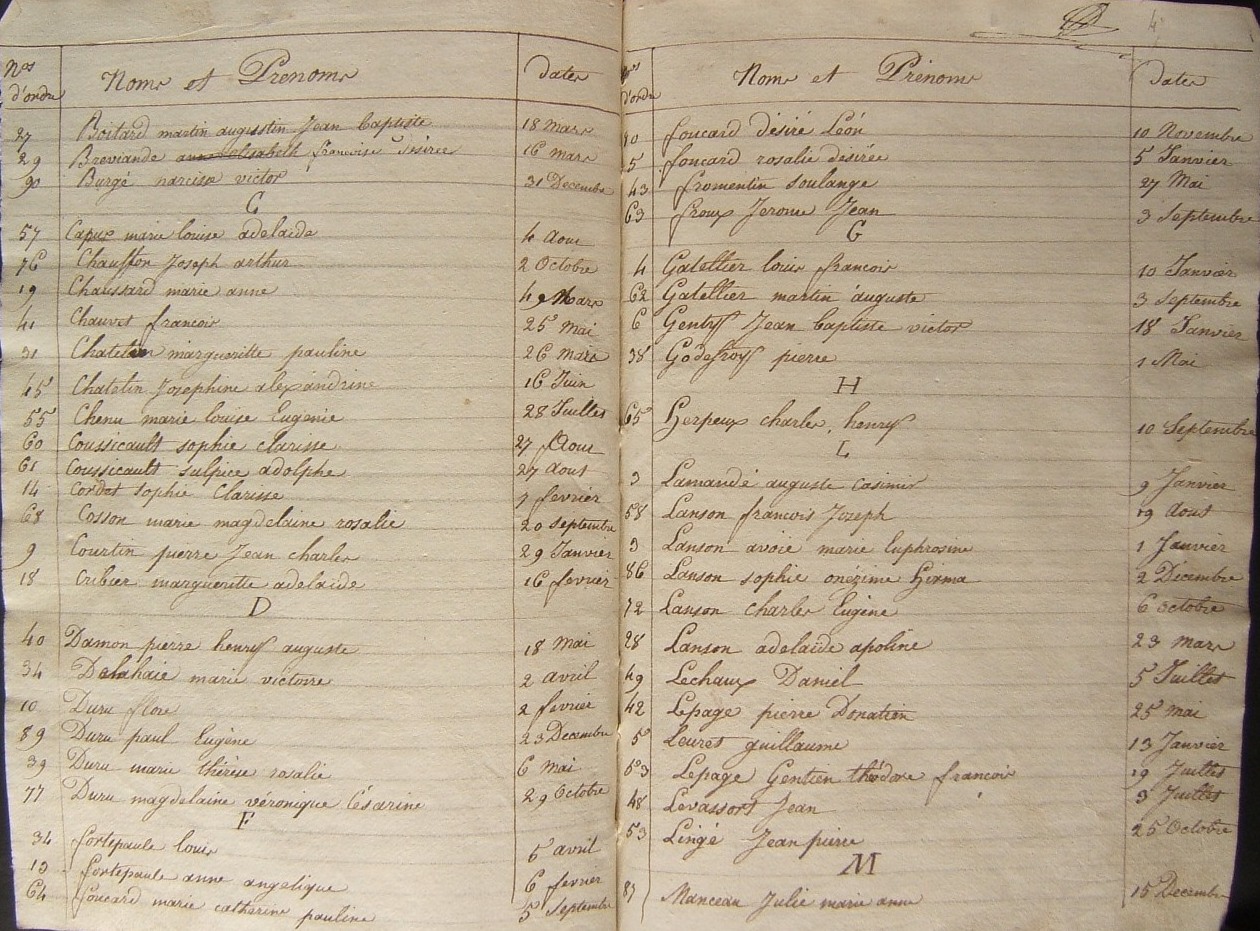 Nos d'ordre Noms et Prénoms dates
27 Boitard martin augustin Jean baptiste 18 Mars
29 Breviande anne elisabeth francoise désirée 16 mars
90 Burgé narcisse victor 31 Decembre
C
57 Capus marie louise adelaide 4 Aout
76 Chauffon Joseph arthur 2 Octobre
19 Chaussard marie anne Mars
41 Chauvet francois 25 mai
31 Chatelin margueritte pauline 26 Mars
45 Chatelin Josephine alexandrine 16 Juin
55 Chenu marie louise Eugenie 28 Juillet
60 Coussicault sophie clarisse 27 Aout
61 Coussicault sulpice adolphe 27 aout
14 Cordet sophie Clarisse 7 fevrier
68 Cosson marie magdelaine rosalie 20 septembre
9 Courtin pierre Jean charles 29 Janvier
18 Cribier margueritte adelaide 16 fevrier
D
40 Damon pierre henry auguste 18 Mai
34 Delahaie marie victoire 2 avril
10 Duru flore 2 fevrier
89 Duru paul Eugène 23 Decembre
39 Duru marie thérèse rosalie 6 Mai
77 Duru magdelaine véronique Césarine 29 Octobre
F
34 fortepaule louis 5 avril
13 fortepaule anne angelique 6 fevrier
64 foucard marie catherine pauline 5 Septembre
4
d'ordre Noms et Prénoms dates
foucard désiré Léon 10 Novembre
5 foucard rosalie désirée 5 Janvier
43 fromentin soulange 27 Mai
63 froux Jerome Jean 3 Septembre
G
4 Gatellier louis francois 10 Janvier
62 Gatellier martin auguste 3 septembre
6 Genty Jean baptiste victor 18 Janvier
38 Godefroy pierre 1 Mai
H
65 Herpeux charles henry 10 Septembre
L
3 Lamandé auguste casimir 9 Janvier
58 Lanson francois Jozeph 19 Aout
3 Lanson avoie marie Euphrosine 1 Janvier
86 Lanson sophie onézime 2 Decembre
72 Lanson charles Eugène 6 octobre
28 Lanson adelaïde apoline 23 mars
49 Lechaux Daniel 5 Juillet
42 Lepage pierre Donatien 25 mai
5 Leuret guillaume 13 Janvier
53 Lepage Gentien théodore francois 19 Juillet
48 Levassort Jean 3 Juillet
53 Lingé Jean pierre 25 Octobre
M
87 Manceau Julie marie anne 15 Decembre